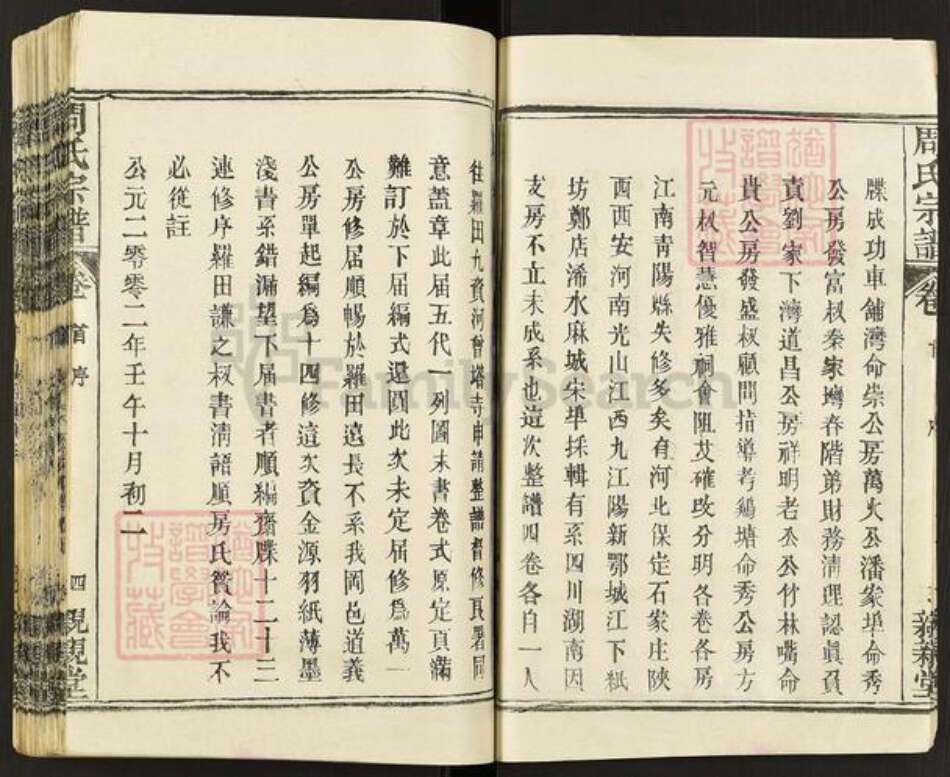 周氏宗譜
牒成功車舖灣命崇公房萬火公潘家埠命秀
公房發富叔秦家塆春階弟財務清理認眞負
責劉家下灣道昌公房祥明老公公竹林嘴命
貴公房發盛叔顧問指導考鷄塘命秀公房方
元叔智慧優雅祠會阻艾確改分明各卷各房
江南青陽縣失修多矣有河北保定石家庄陝
西西安河南光山江西九江陽新鄂城江下紙
坊鄭店浠水麻城宋埠採輯有系四川湖南因
支房不立未成系也這次整譜四卷各自一人
往羅田九資河曾塔寺申請整譜督修良署同
意蓋章此届五代一列圖末書卷式原定頁滿
難訂於下届編式還圓此次未定届修爲萬一
公房修届順暢於羅田遠長不系我岡邑道義
公房單起編爲十四修這次資金源羽紙薄墨
淺書系錯漏望下届書者順編齋牒十二十三
連修序羅田謙之叔書清語順房氏贊論我不
必從註
公元二零零二年壬午十月初二
周氏宗譜
卷首
序
四
親親堂